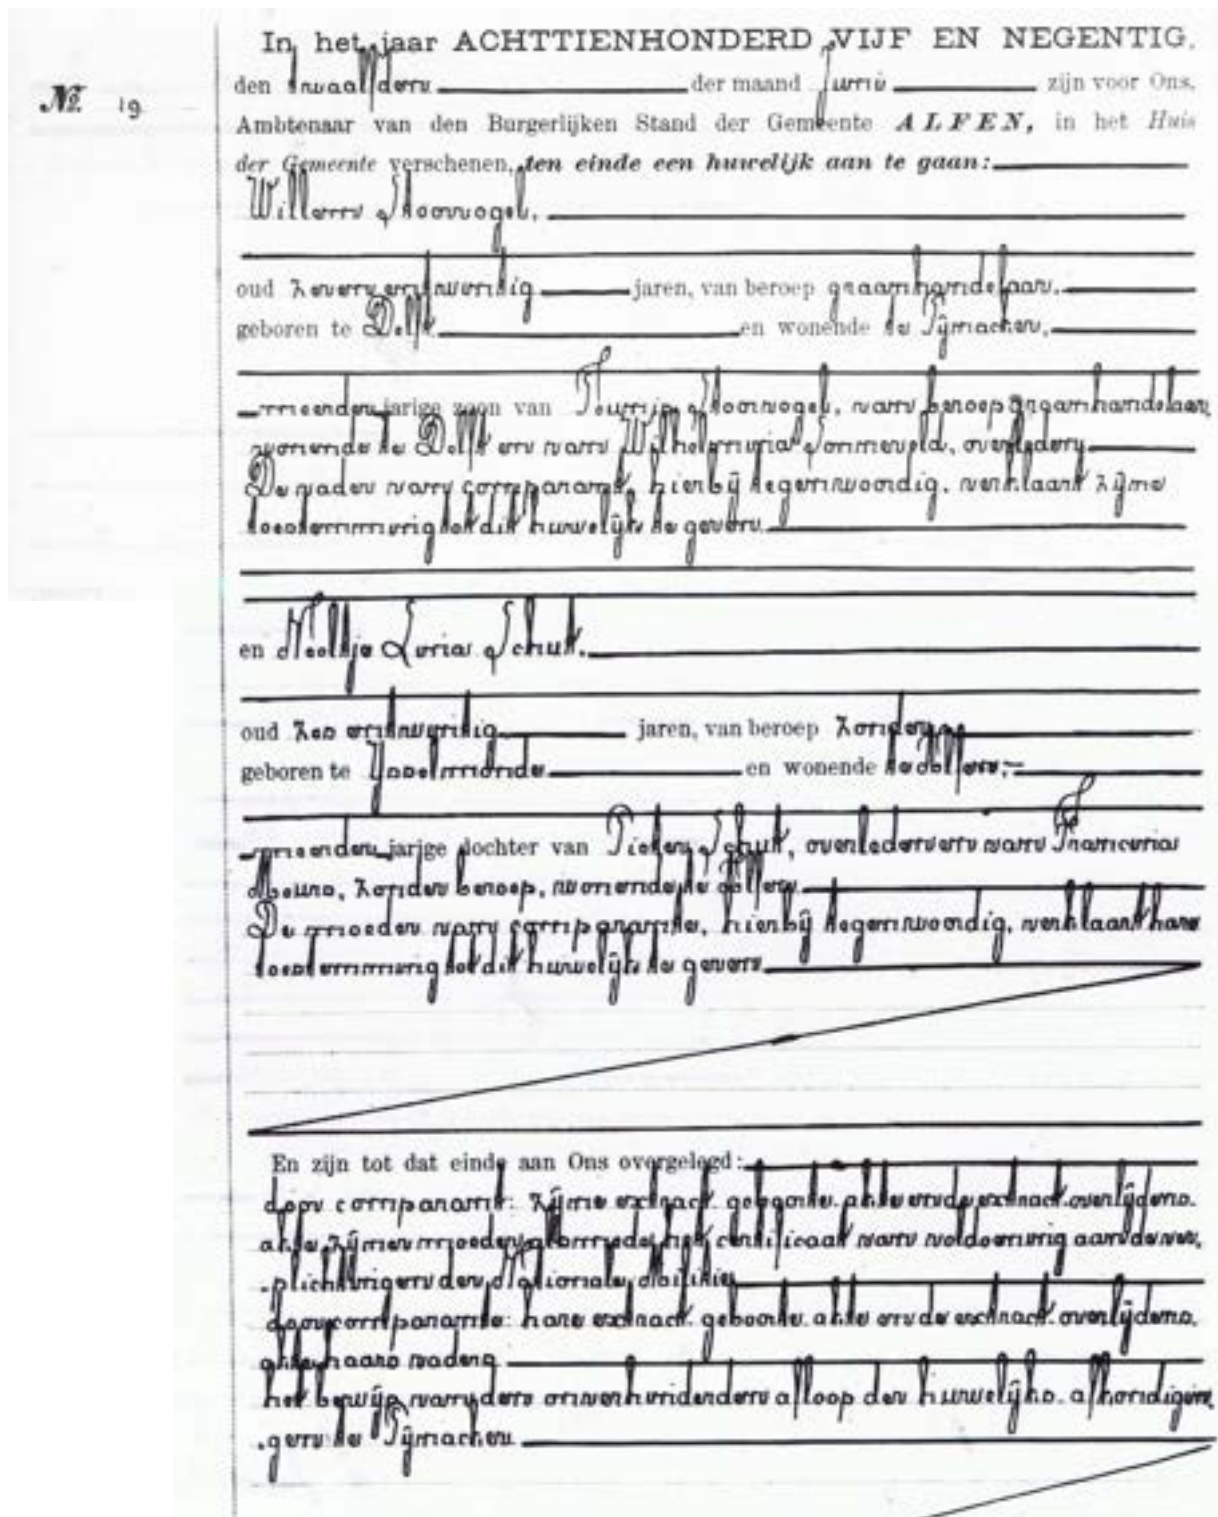 In het jaar ACHTTIENHONDERD VIJF EN NEGENTIG,
No. 19
den twaalfden der maand Juni zijn voor Ons,
Ambtenaar van den Burgerlijken Stand der Gemeente ALFEN, in het Huis
der Gemeente verschenen, ten einde een huwelijk aan te gaan:
Willem Hoorvogel,
oud zeven en twintig jaren, van beroep graanhandelaar,
geboren te Delft en wonende te Pijnacker,
meerderjarige zoon van van beroep graanhandelaar,
wonende te Delft en van Wilhelmina Sommeveld, overleden
De vader van comparant, hierbij tegenwoordig, verklaart zijne
toestemming tot dit huwelijk te geven
en Neeltje Schut,
oud zes en twintig jaren, van beroep zonder,
geboren te IJsselmonde en wonende te Alfen,
meerderjarige dochter van Pieter Schut, overleden en van
zonder beroep, wonende te Alfen
De moeder van comparante, hierbij tegenwoordig, verklaart hare
toestemming tot dit huwelijk te geven
En zijn tot dat einde aan Ons overgelegd:
door comparant: zijne extract geboorte akte en de extract overlijdens
akte zijner moeder alsmede het certificaat van voldoening aan de ver,
plichtingen der Nationale Militie
door comparante: hare extract geboorte akte en de extract overlijdens
akte haars vaders
het bewijs van den onverhinderden afloop der huwelijks afkondigin,
gen te Pijnacker